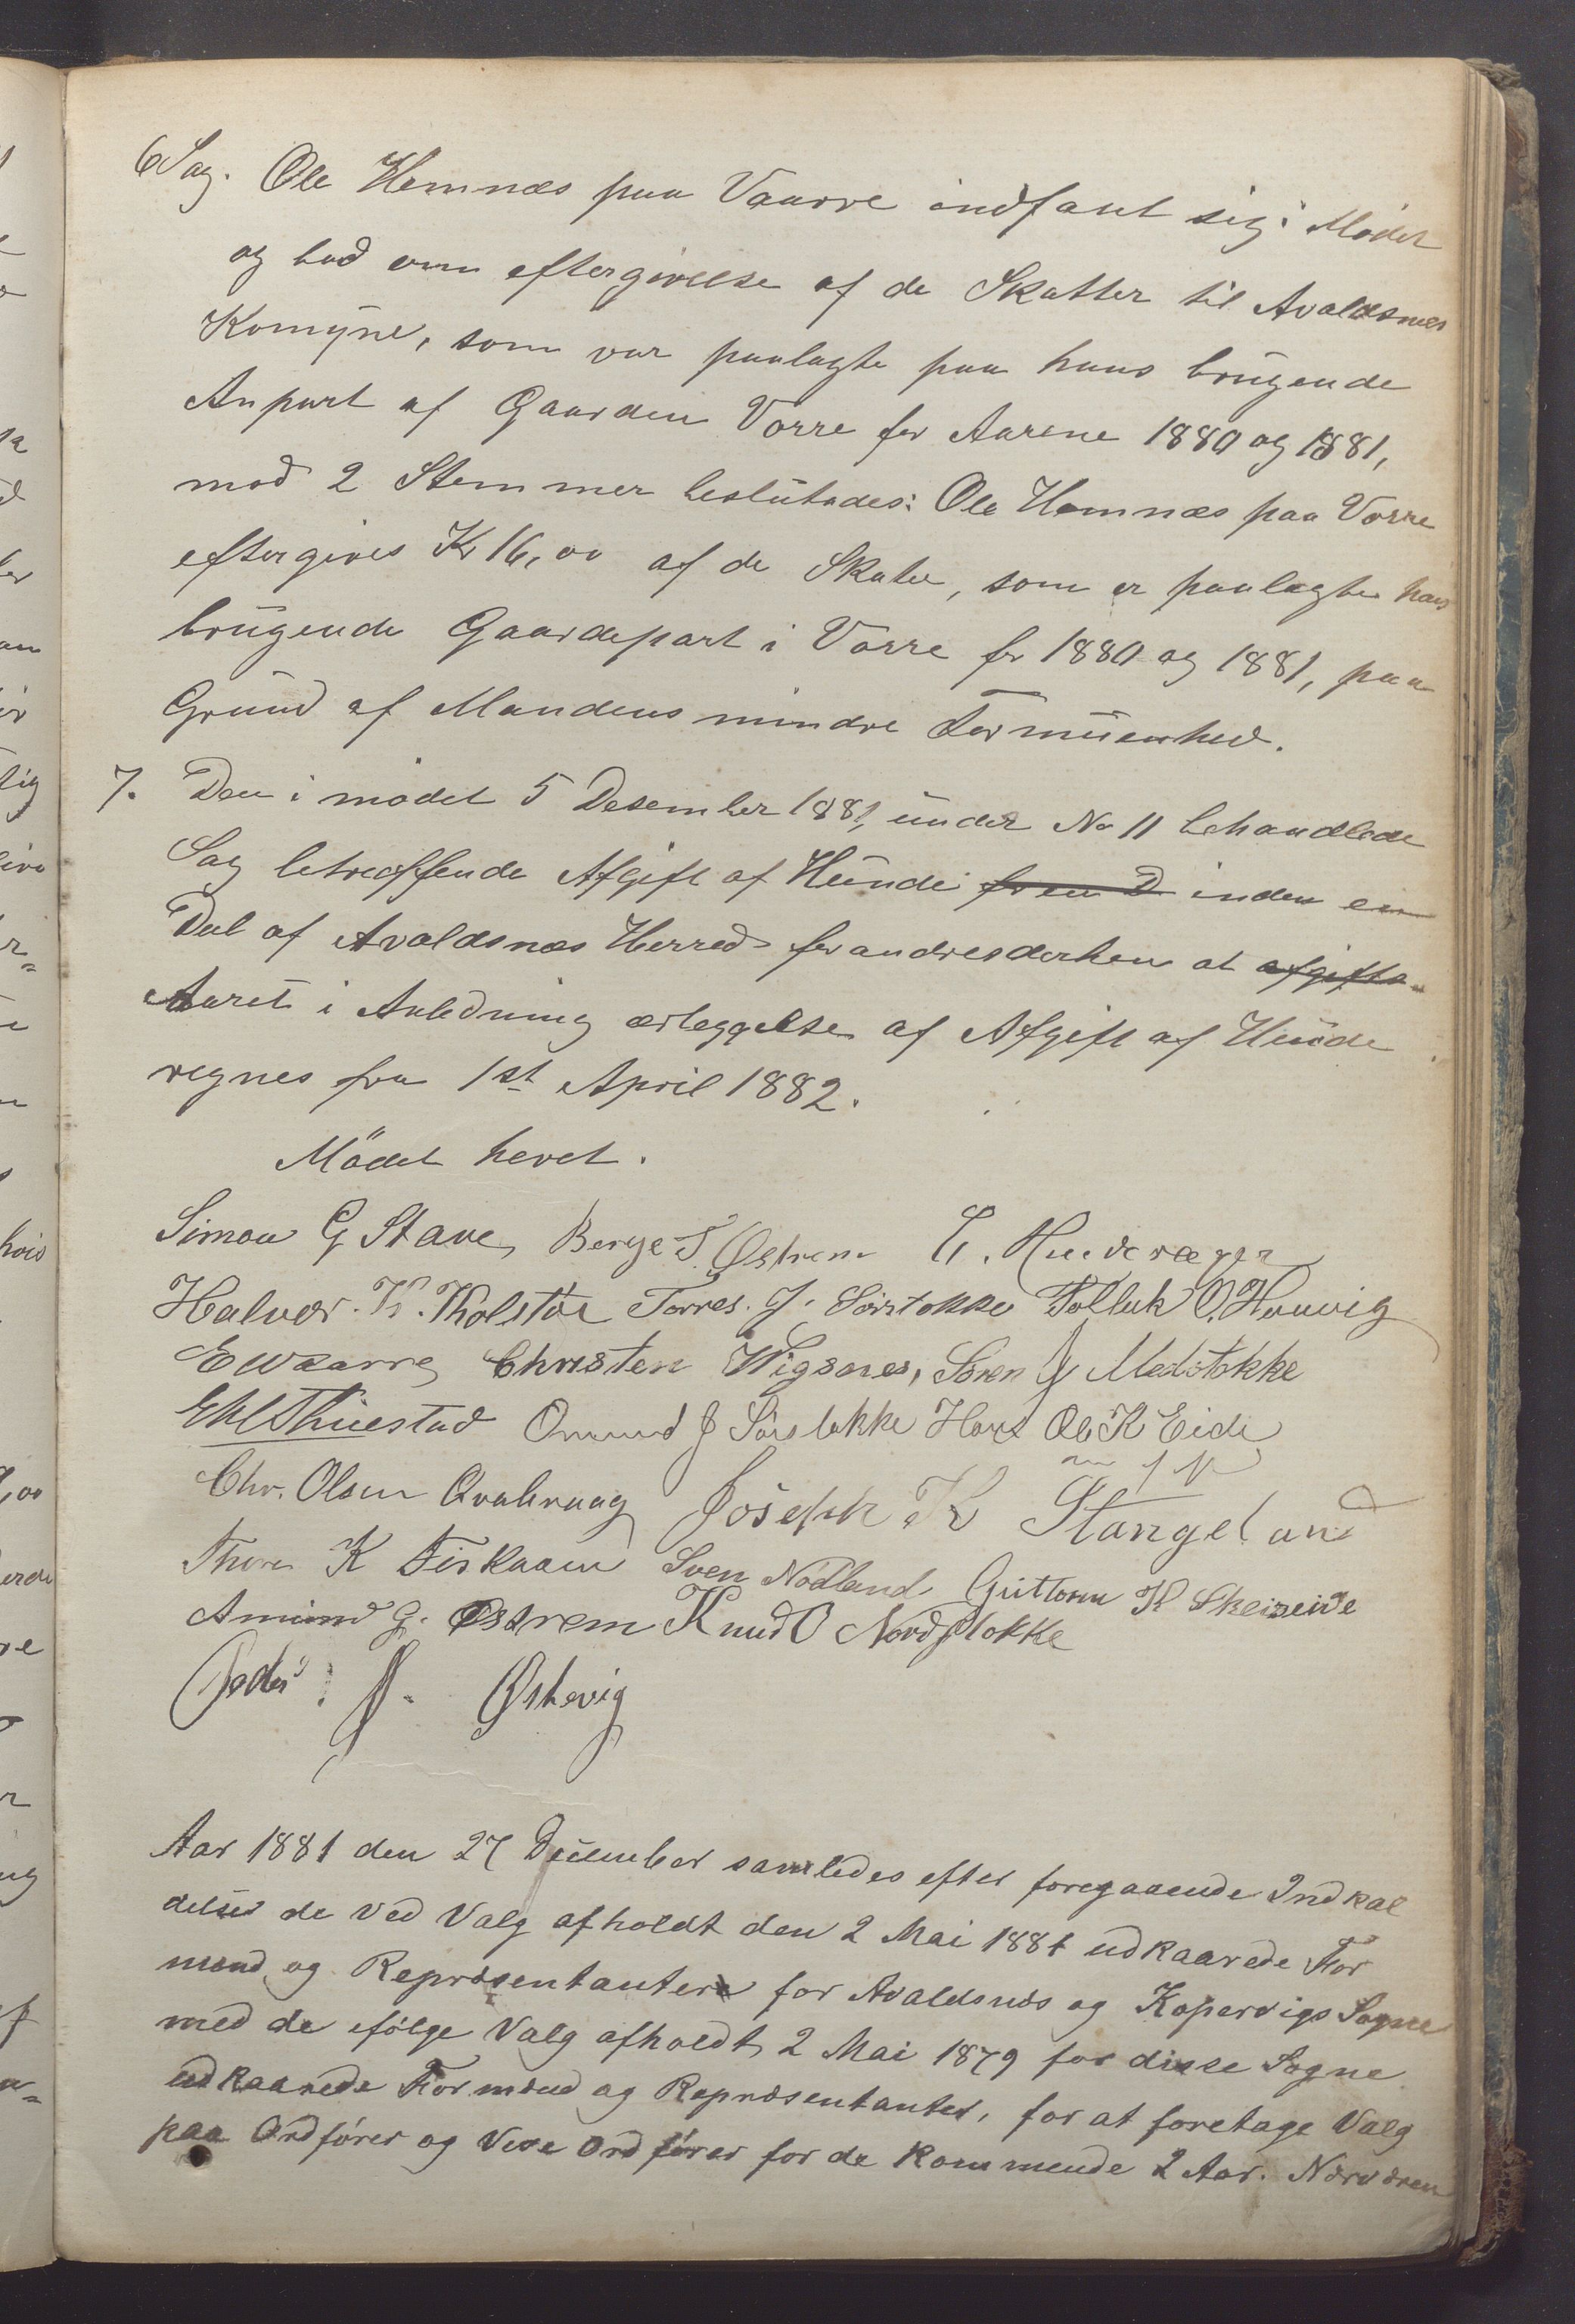 6 Sag. Ole Hemnæs paa Vaarre indfant sig i Mødet
og bad om eftergivelse af de Skatter til Avaldsnes
Komyne, som var paalagte paa hans brugende
Anpart af Gaarden Vorre for Aarene 1880 og 1881,
mod 2 Stemmer beslutades: Ole Hemnæs paa Vorre
eftergives Kr 16,00 af de Skater, som er paalagte hans
brugende Gaardepart i Vorre for 1880 og 1881, paa
Grund af Mandens mindre Formuenhed.
7. Den i mødet 5 Desember 1881, under No 11 behandlede
Sag betreffende Afgift af Hunde for en D inden en
Del af Avaldsnæs Herred forandres derhen at afgifts
Aaret i Anledning erleggelse af Afgift af Hunde
regnes fra 1st April 1882.
Mødet hevet.
Simon G Stave, Berge T. Østrem
Halvor. K. Kolstøe Torres. J. Sørstokke O. Houvig
E Waarre Christen Wigsnes, Søren J Medstokke
Thuestad Omund J Sørstokke Ole K Eide
Chr. Olsen Qvalevaag Joseph K Stangeland
Thore K Fiskaaen Sven Nodland Guttorm K Skeiseide
Amund G. Østrem Knud O Nordstokke
Peder J. Østevig
Aar 1881 den 27 December samledes efter foregaaende Indkal
delse de ved Valg afholdt den 2 Mai 1881 udkaarede For
mænd og Repræsentanter for Avaldsnes og Kopervigs Sogne
med de ifølge Valg afholdt 2 Mai 1879 for disse Sogne
udkaarede Formænd og Repræsentanter, for at foretage Valg
paa Ordfører og Vise Ordfører for de kommende 2 Aar. Nærværen